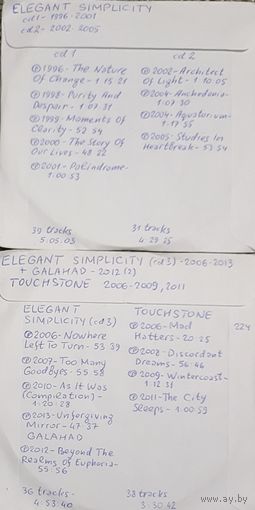 ELEGANT SIMPLICITY
cd1 - 1996-2001
cd2 - 2002-2005
cd 1
℗1996 - The Nature
Of Change - 1 15 21
℗1998 - Purity And
Despair - 1 07 31
℗1999 - Moments Of
Clarity - 52 54
℗2000 - The Story Of
Our Lives - 48 22
℗2001 - Palindrome -
1 00 53
39 tracks
5:05:03
cd 2
℗2002 - Architect
Of Light - 1 10 05
℗2004 - Anhedonia -
1:07 30
℗2004 - Aquatorium -
1 17 55
℗2005 - Studies In
Heartbreak - 53 54
31 tracks
4 29 25
ELEGANT SIMPLICITY (cd3) - 2006-2013
+ GALAHAD - 2012 (2)
TOUCHSTONE 2006-2009, 2011
ELEGANT
SIMPLICITY (cd3)
℗2006 - Nowhere
Left To Turn - 53 39
℗2007 - Too Many
Goodbyes - 55 58
℗2010 - As It Was
(Compilation) -
1 20 28
℗2013 - Unforgiving
Mirror - 47 37
GALAHAD
℗2012 - Beyond The
Realms Of Euphoria -
55 56
36 tracks -
4:53:40
TOUCHSTONE
℗2006 - Mad
Hatters - 20 25
℗2007 - Discordant
Dreams - 56 46
℗2009 - Wintercoast -
1 12 31
℗2011 - The City
Sleeps - 1 00 59
38 tracks
3:30:42
224
www.ay.by